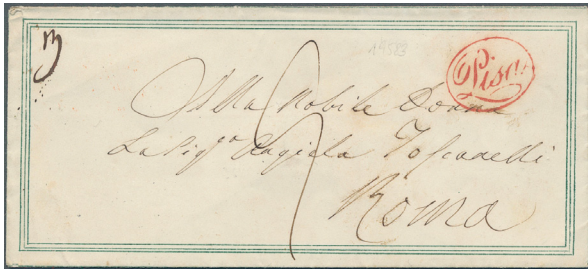 Pisa
Alla Nobile Donna
La Sig.ra Angiola Toscanelli
Roma